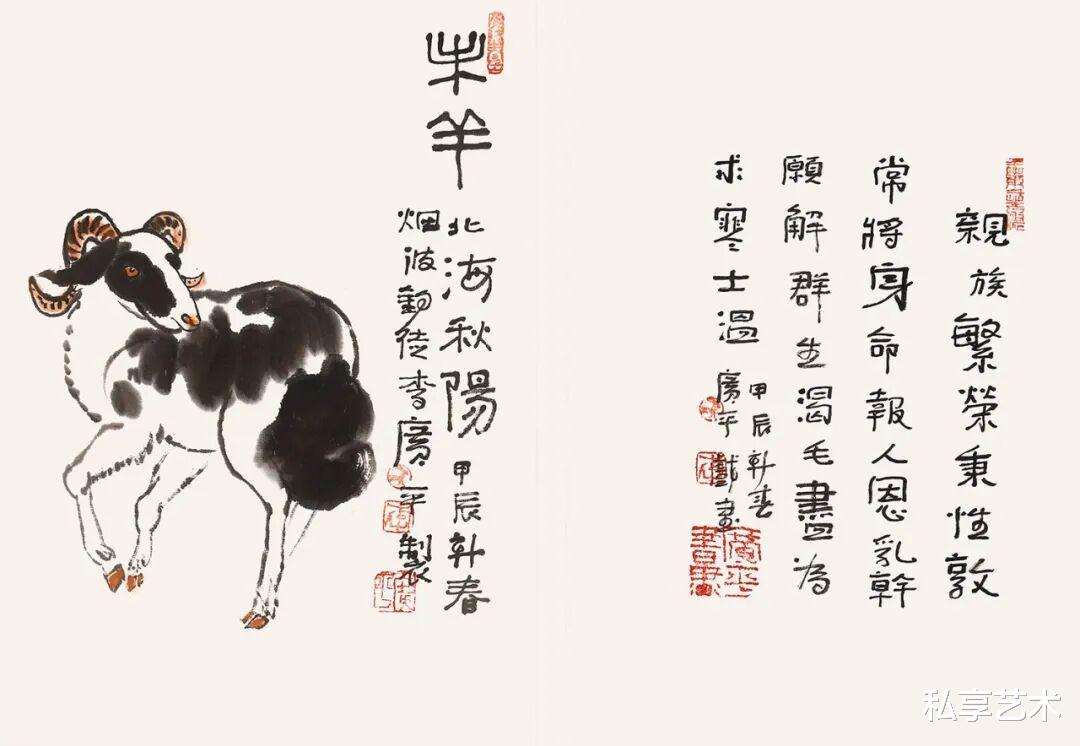 親族繁榮秉性敦
常將身命報人恩乳幹
願解群生渴毛盡為
求寒士溫
甲辰新春
廣平戲畫
廣平書畫
未羊
北海秋陽 甲辰新春
烟波釣徒李廣平製
私享艺术